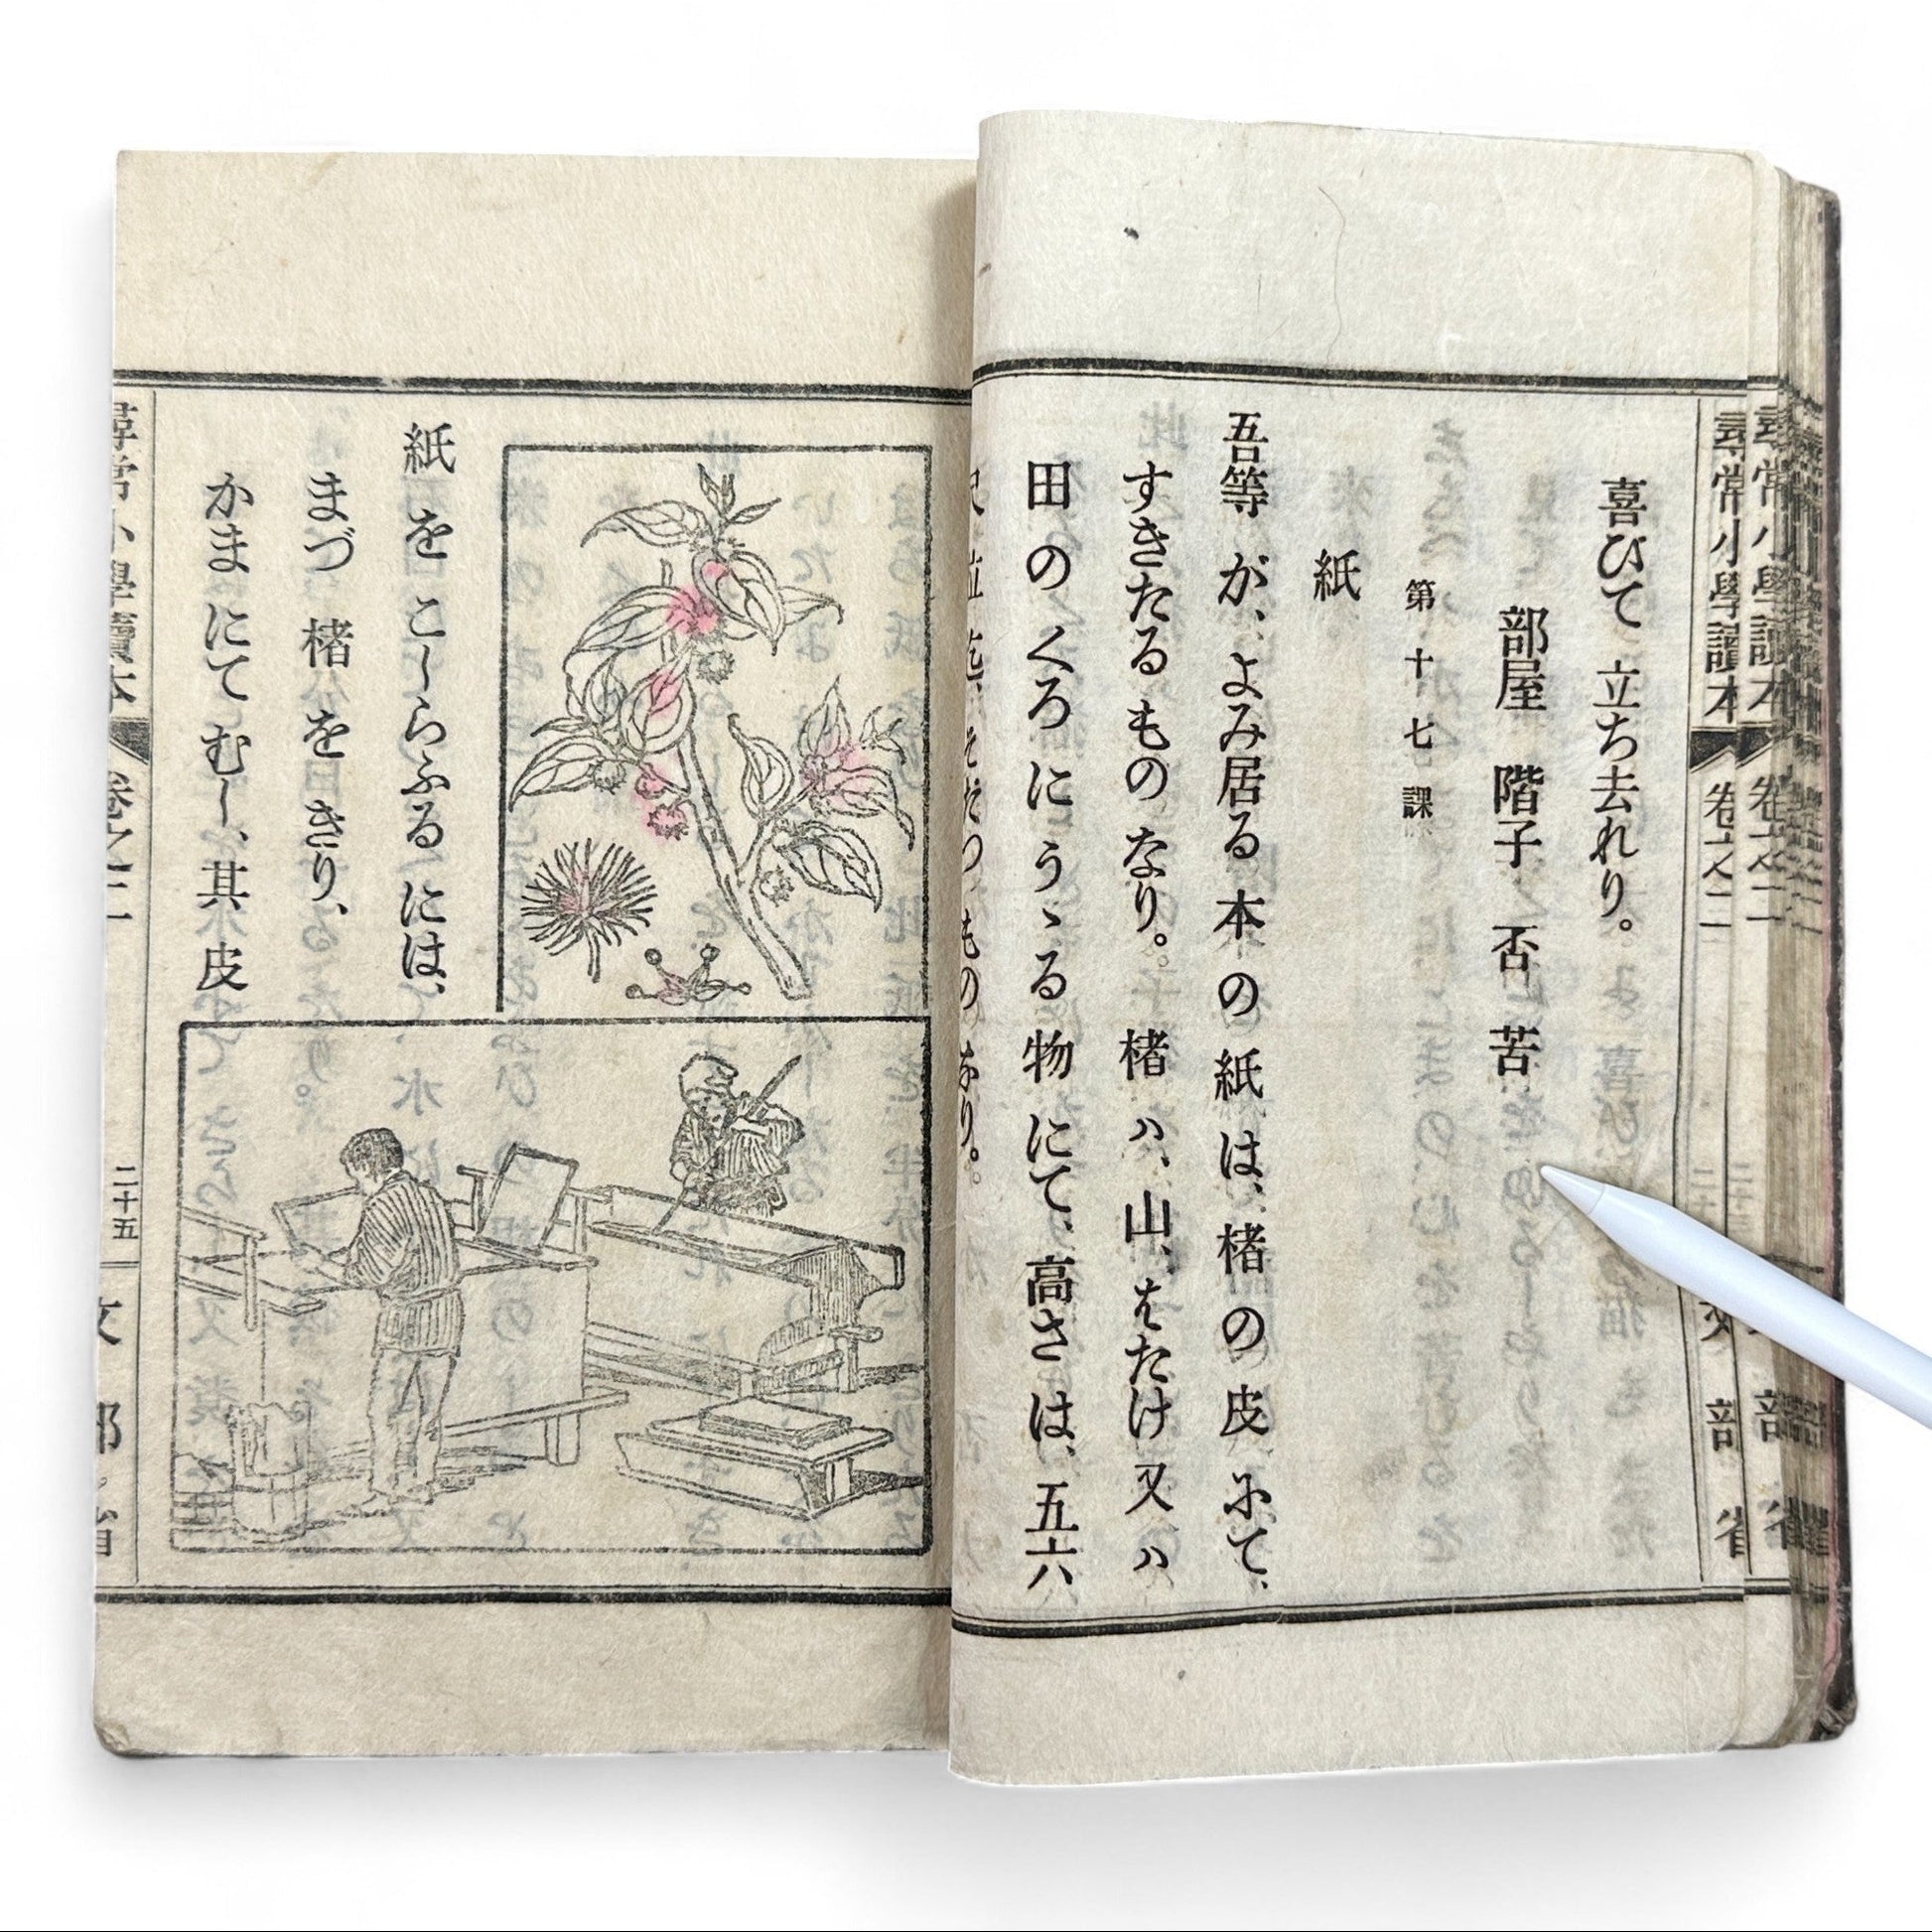 喜びて 立ち去れり。
部屋 階子 否 苦
第十七課
紙
吾等 が、よみ居る 本 の 紙 は、楮 の 皮 にて、
すきたる もの なり。 楮 ハ、山、はたけ 又 ハ
田 の くろ に うゝる 物 にて、高さ は、五六
そだつ もの なり。
紙 を こしらふる には、
まづ 楮 を きり、
かま にて むし、其 皮
尋常小學讀本 卷之二 二十五 文部省
尋常小學讀本 卷之二